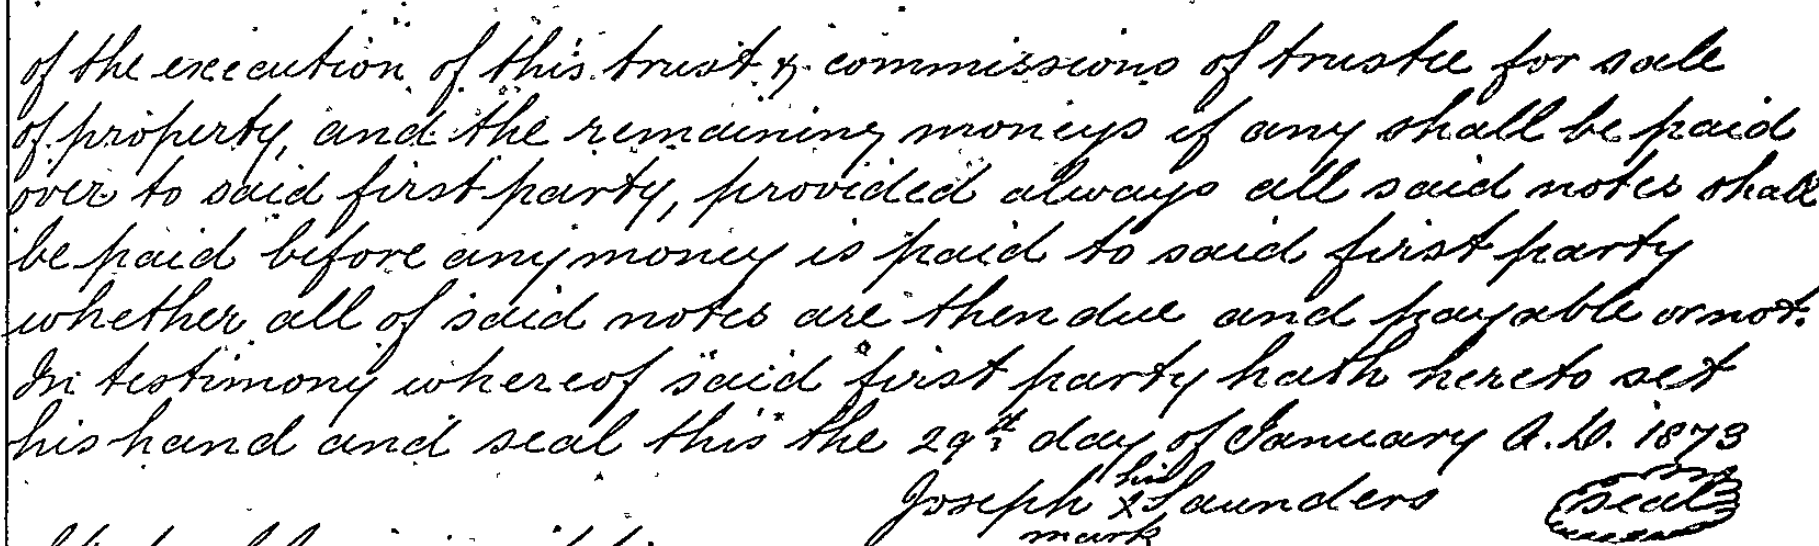 of the execution of this trust & commissions of trustee for sale
of property, and the remaining moneys if any shall be paid
over to said first party, provided always all said notes shall
be paid before any money is paid to said first party
whether all of said notes are then due and payable or not.
In testimony whereof said first party hath hereto set
his hand and seal this the 29th day of January A.D. 1873
his
Joseph X Saunders seal
mark